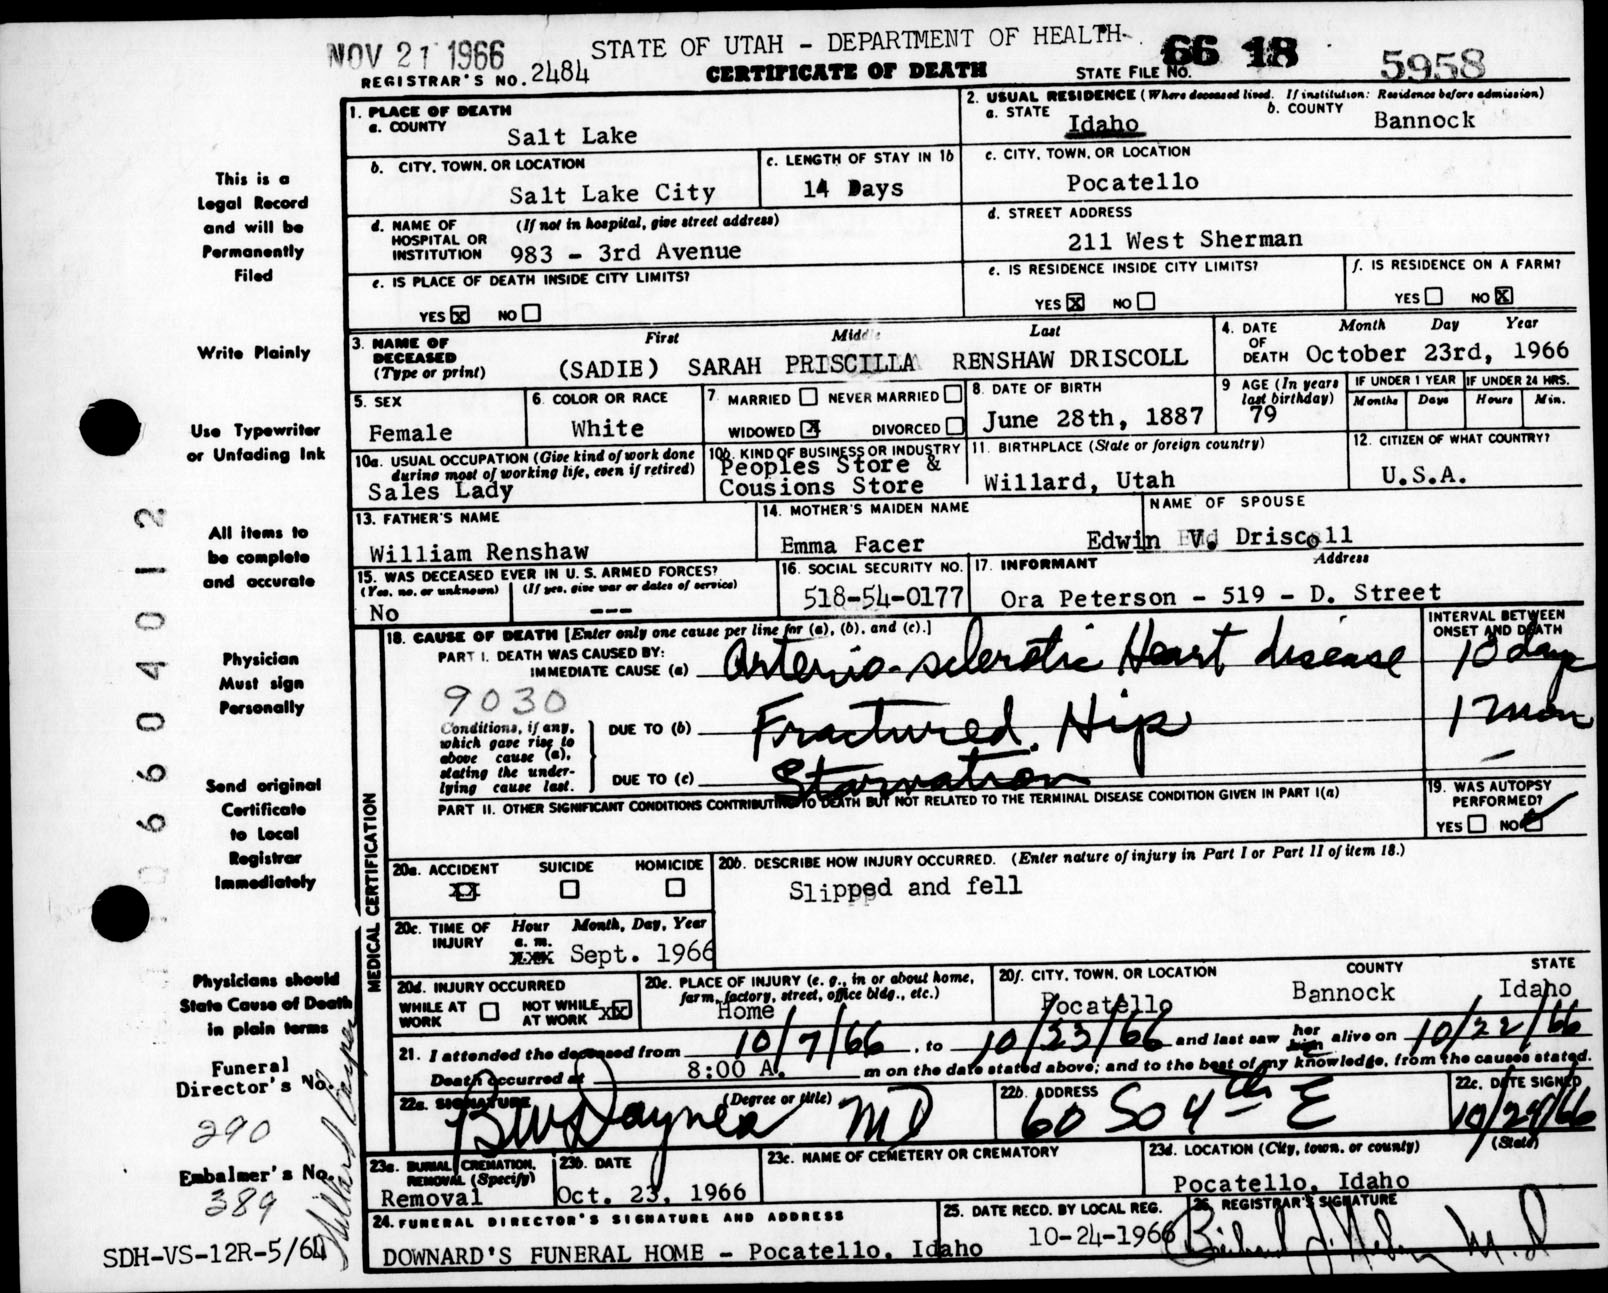 NOV 21 1966
STATE OF UTAH - DEPARTMENT OF HEALTH
66 18
5958
REGISTRAR'S NO. 2484
CERTIFICATE OF DEATH
STATE FILE NO.
1. PLACE OF DEATH
a. COUNTY
Salt Lake
2. USUAL RESIDENCE (Where deceased lived. If institution: Residence before admission)
a. STATE
Idaho
b. COUNTY
Bannock
b. CITY, TOWN, OR LOCATION
Salt Lake City
c. LENGTH OF STAY IN 1b
14 Days
c. CITY, TOWN, OR LOCATION
Pocatello
d. NAME OF HOSPITAL OR INSTITUTION
(If not in hospital, give street address)
983 - 3rd Avenue
d. STREET ADDRESS
211 West Sherman
e. IS PLACE OF DEATH INSIDE CITY LIMITS?
YES X NO
e. IS RESIDENCE INSIDE CITY LIMITS?
YES X NO
f. IS RESIDENCE ON A FARM?
YES NO X
3. NAME OF DECEASED (Type or print)
First Middle Last
(SADIE) SARAH PRISCILLA RENSHAW DRISCOLL
4. DATE OF DEATH
Month Day Year
October 23rd, 1966
5. SEX
Female
6. COLOR OR RACE
White
7. MARRIED NEVER MARRIED
WIDOWED X DIVORCED
8. DATE OF BIRTH
June 28th, 1887
9 AGE (In years last birthday)
79
IF UNDER 1 YEAR
Months Days
IF UNDER 24 HRS.
Hours Min.
10a. USUAL OCCUPATION (Give kind of work done during most of working life, even if retired)
Sales Lady
10b. KIND OF BUSINESS OR INDUSTRY
Peoples Store &
Cousions Store
11. BIRTHPLACE (State or foreign country)
Willard, Utah
12. CITIZEN OF WHAT COUNTRY?
U.S.A.
13. FATHER'S NAME
William Renshaw
14. MOTHER'S MAIDEN NAME
Emma Facer
NAME OF SPOUSE
Edwin V. Driscoll
15. WAS DECEASED EVER IN U. S. ARMED FORCES?
(Yes, no, or unknown) (If yes, give war or dates of service)
No ---
16. SOCIAL SECURITY NO.
518-54-0177
17. INFORMANT Address
Ora Peterson - 519 - D. Street
18. CAUSE OF DEATH [Enter only one cause per line for (a), (b), and (c).]
INTERVAL BETWEEN ONSET AND DEATH
PART I. DEATH WAS CAUSED BY:
IMMEDIATE CAUSE (a) Arterio-sclerotic Heart disease
10 days
9030
Conditions, if any, which gave rise to above cause (a), stating the underlying cause last.
DUE TO (b) Fractured Hip
1 mon
DUE TO (c) Starvation
PART II. OTHER SIGNIFICANT CONDITIONS CONTRIBUTING TO DEATH BUT NOT RELATED TO THE TERMINAL DISEASE CONDITION GIVEN IN PART I(a)
19. WAS AUTOPSY PERFORMED?
YES NO
MEDICAL CERTIFICATION
20a. ACCIDENT SUICIDE HOMICIDE
XX
20b. DESCRIBE HOW INJURY OCCURRED. (Enter nature of injury in Part I or Part II of item 18.)
Slipped and fell
20c. TIME OF INJURY
Hour Month, Day, Year
a. m.
Sept. 1966
20d. INJURY OCCURRED
WHILE AT WORK NOT WHILE AT WORK XX
20e. PLACE OF INJURY (e. g., in or about home, farm, factory, street, office bldg., etc.)
Home
20f. CITY, TOWN, OR LOCATION COUNTY STATE
Pocatello Bannock Idaho
21. I attended the deceased from 10/7/66, to 10/23/66 and last saw her him alive on 10/22/66
Death occurred at 8:00 A. m on the date stated above; and to the best of my knowledge, from the causes stated.
22a. SIGNATURE (Degree or title)
MD
22b. ADDRESS
60 So 4th E
22c. DATE SIGNED
10/24/66
23a. BURIAL, CREMATION, REMOVAL (Specify)
Removal
23b. DATE
Oct. 23, 1966
23c. NAME OF CEMETERY OR CREMATORY
23d. LOCATION (City, town, or county) (State)
Pocatello, Idaho
24. FUNERAL DIRECTOR'S SIGNATURE AND ADDRESS
DOWNARD'S FUNERAL HOME - Pocatello, Idaho
25. DATE RECD. BY LOCAL REG.
10-24-1966
26. REGISTRAR'S SIGNATURE
M.D
This is a
Legal Record
and will be
Permanently
Filed
Write Plainly
Use Typewriter
or Unfading Ink
All items to
be complete
and accurate
Physician
Must sign
Personally
Send original
Certificate
to Local
Registrar
Immediately
Physicians should
State Cause of Death
in plain terms
Funeral
Director's No.
290
Embalmer's No.
389
SDH-VS-12R-5/64
06604012